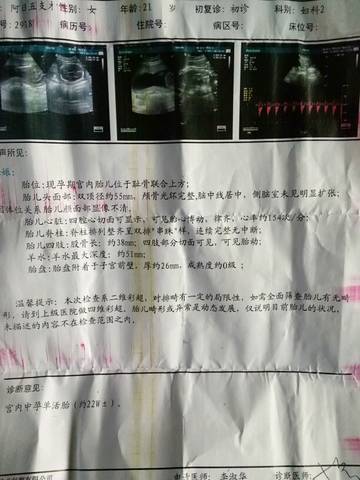 性别: 女 年龄:21 岁 初复诊: 初诊 科别: 妇科2
病历号: 住院号: 病区号: 床位号:
声所见:
胎位:现孕期宫内胎儿位于耻骨联合上方;
胎儿头面部:双顶径约55mm, 颅骨光环完整,脑中线居中, 侧脑室未见明显扩张;
体位关系胎儿颜面部显像不清,
胎儿心脏:四腔心切面可显示, 可见胎心搏动, 律齐, 心率约154次/分;
胎儿脊柱:脊柱排列整齐呈双排"串珠"样, 连续完整无中断;
胎儿四肢:股骨长: 约38mm; 四肢部分切面可见, 可见胎动;
羊水:羊水最大深度: 约51mm;
胎盘:胎盘附着于子宫前壁, 厚约26mm, 成熟度约0级 ;
温馨提示: 本次检查系二维彩超, 对排畸有一定的局限性, 如需全面筛查胎儿有无畸
形, 请到上级医院做四维彩超, 胎儿畸形或异常是动态发展, 仅说明目前胎儿的状况,
未描述的内容不在检查范围之内,
诊断意见:
宫内中孕单活胎(约22W±)。
医师: 李淑华 诊断医师: